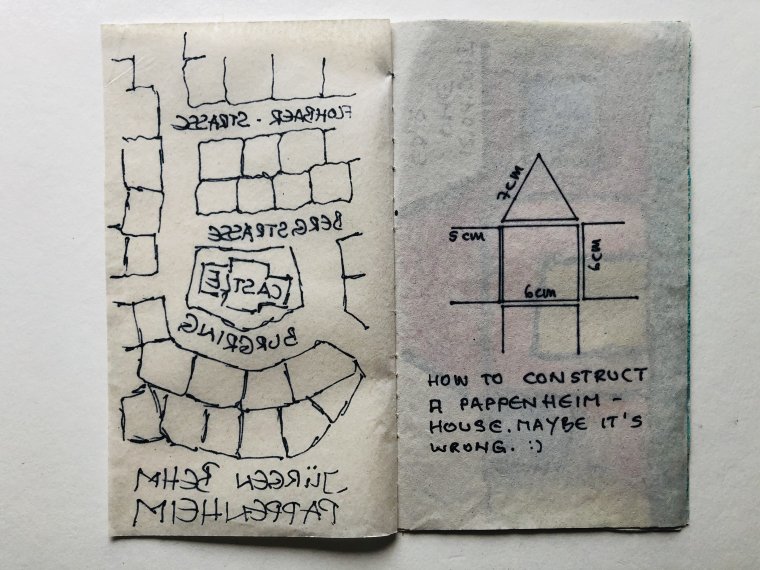 FLOHBAER-STRASSE
BERGSTRASSE
CASTLE
BURGRING
JÜRGEN BEHM
PAPPENHEIM
7cm
5cm
6cm
6cm
HOW TO CONSTRUCT
A PAPPENHEIM -
HOUSE. MAYBE IT'S
WRONG. :)